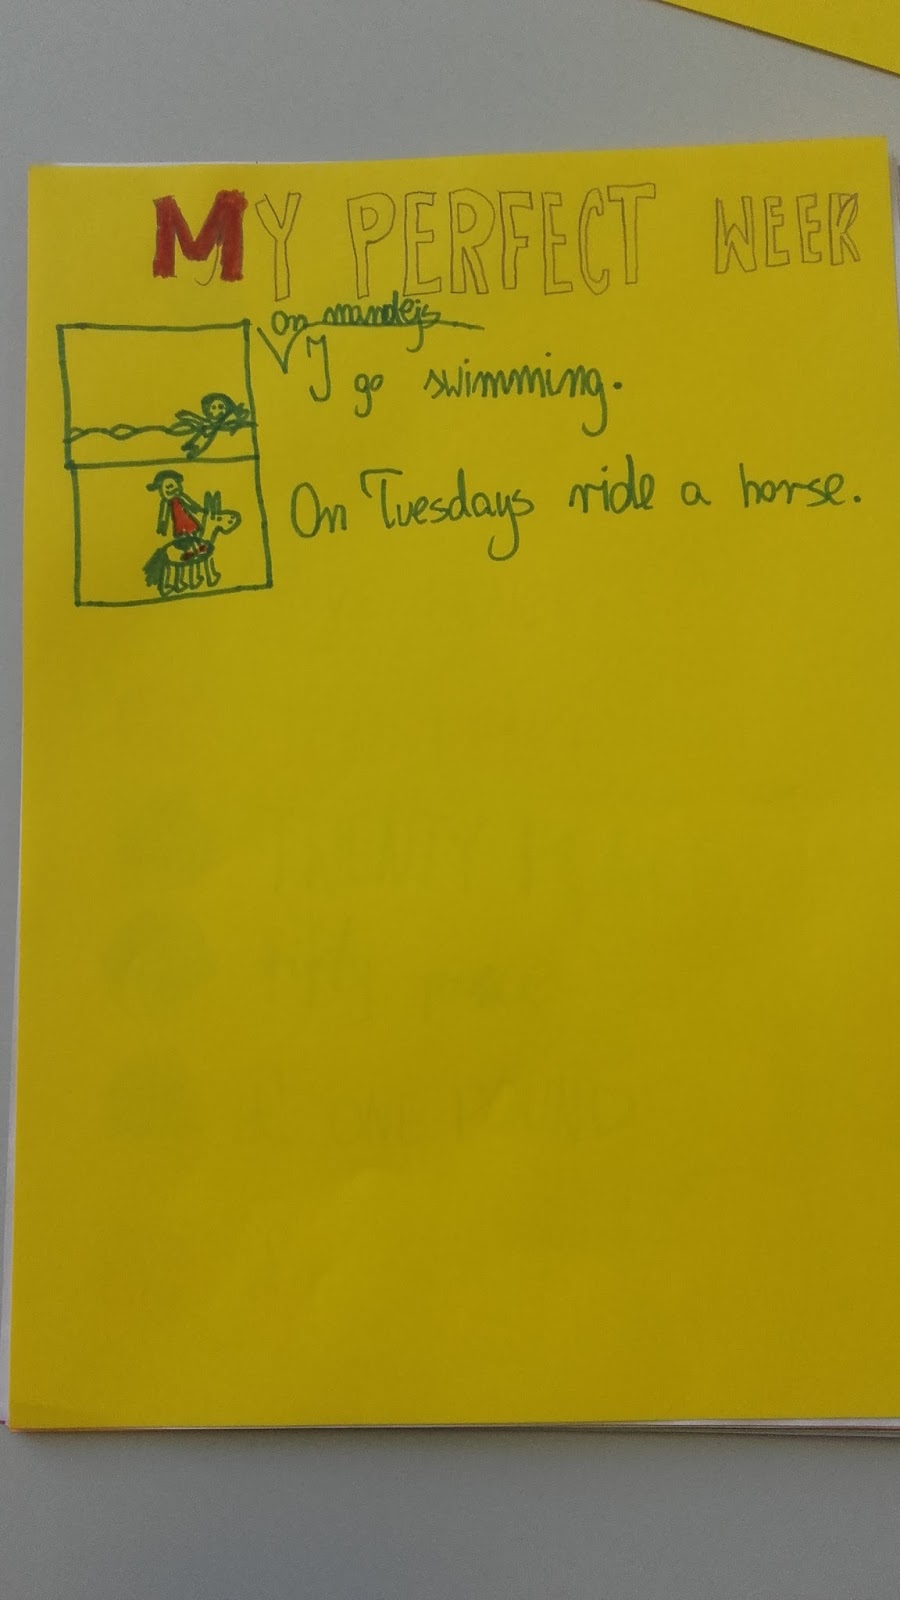 MY PERFECT WEEK
On mandejs
I go swimming.
On Tuesdays ride a horse.